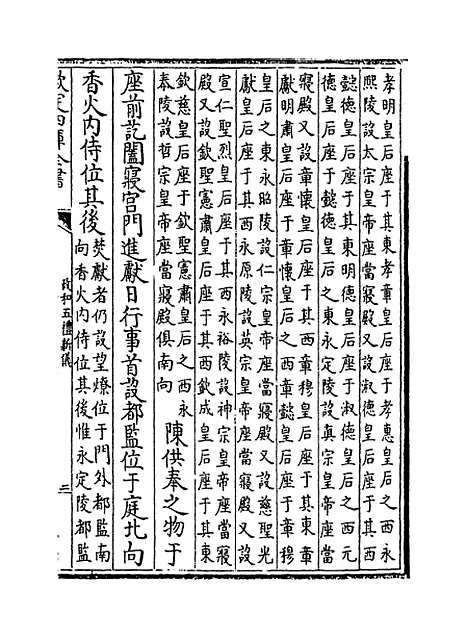 孝明皇后座于其東孝章皇后座于孝惠皇后之西永
熙陵設太宗皇帝座當寢殿又設淑德皇后座于其西
懿德皇后座于其東明德皇后座于淑德皇后之西元
德皇后座于懿德皇后之東永定陵設真宗皇帝座當
寢殿又設章懷皇后座于其西章穆皇后座于其東章
獻明肅皇后座于章懷皇后之西章懿皇后座于章穆
皇后之東永昭陵設仁宗皇帝座當寢殿又設慈聖光
獻皇后座于其西永原陵設英宗皇帝座當寢殿又設
宣仁聖烈皇后座于其西永裕陵設神宗皇帝座當寢
殿又設欽聖憲肅皇后座于其西欽成皇后座于其東
欽慈皇后座于欽聖憲肅皇后之西永
泰陵設哲宗皇帝座當寢殿俱南向
陳供奉之物于
座前訖闔寢宮門進獻日行事首設都監位于庭北向
香火内侍位其後
焚獻者仍設望燎位于門外都監南
向香火内侍位其後惟永定陵都監
欽定四庫全書
政和五禮新儀
三